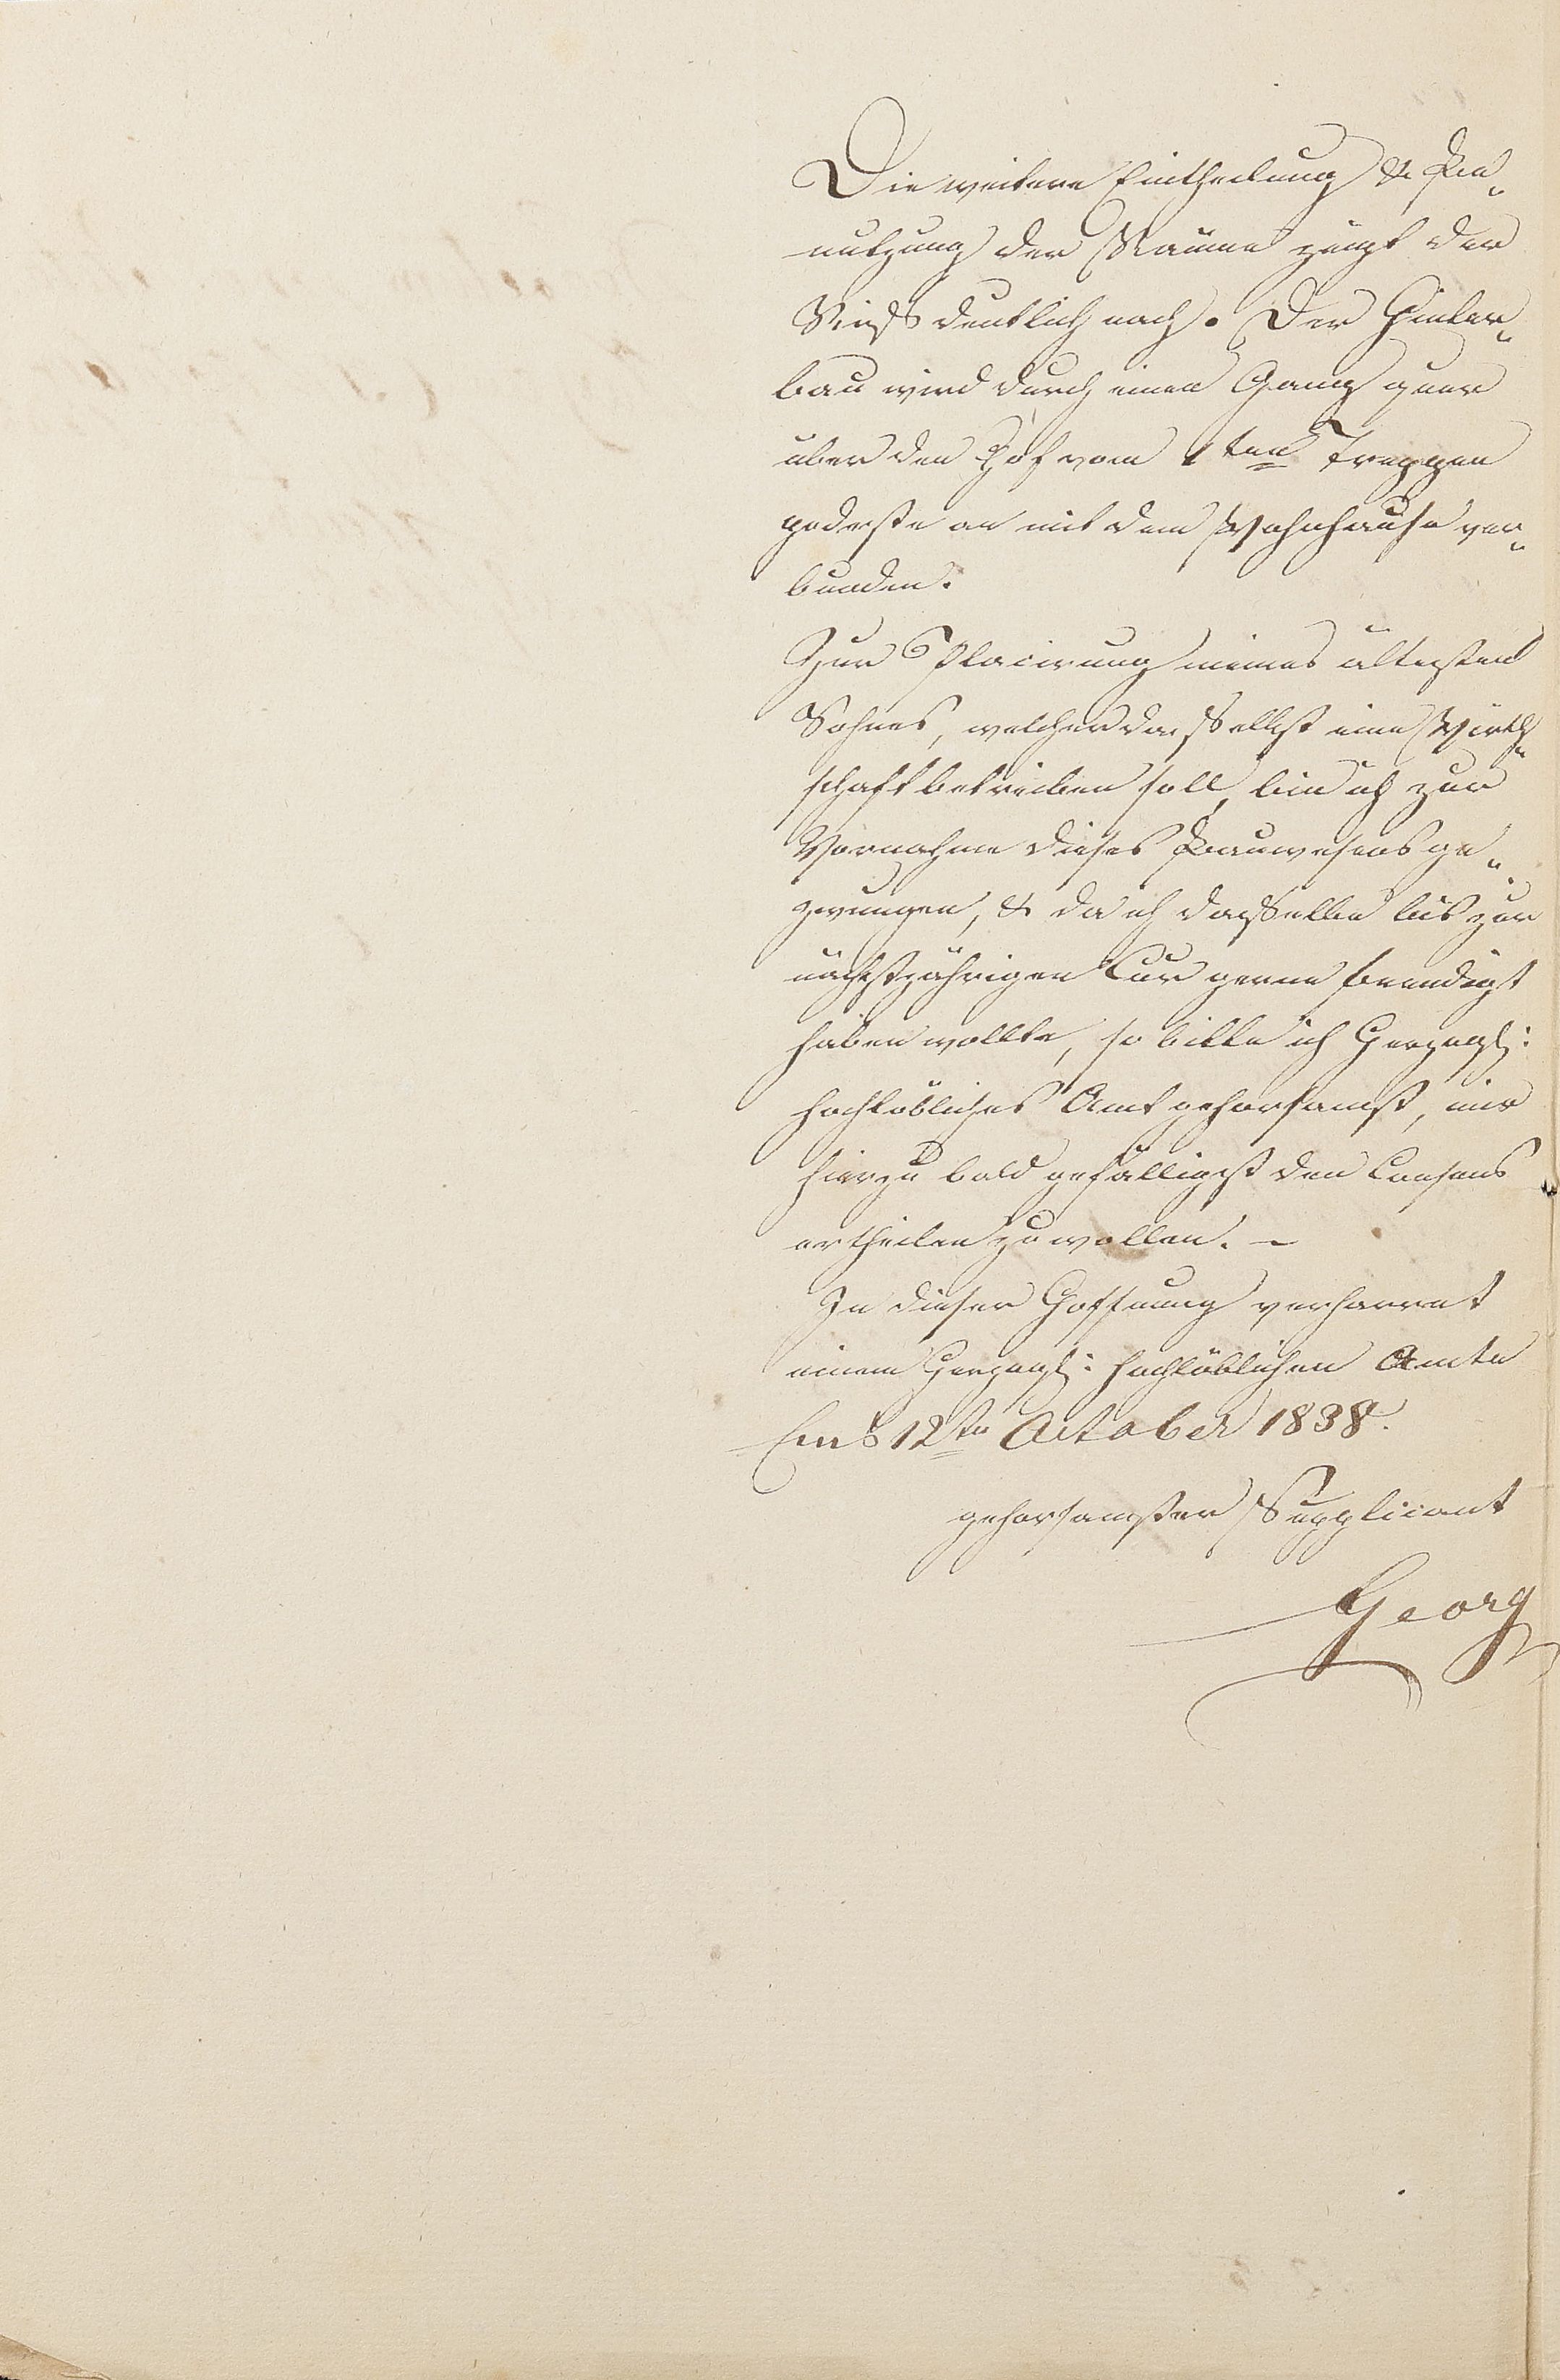 Die weitere Eintheilung & Be„
nutzung der Räume zeigt der
Riss deutlich nach. Der Hinter„
bau wird durch einen Gang quer
über den Hof vom 1ten Treppen
podeste an mit dem Wohnhause ver„
bunden.
Zur Placirung meines ältesten
Sohnes, welcher daselbst eine Wirth„
schaft betreiben soll, bin ich zur
Vornahme dieses Bauwesens ge„
zwungen, & da ich dasselbe bis zur
nächstjährigen Cur gerne beendigt
haben wollte, so bitte ich Herzogl:
hochlöbliches Amt gehorsamst, mir
hierzu bald gefälligst den Consens
ertheilen zu wollen. –
In dieser Hoffnung verharret
einem Herzogl: hochlöblichen Amte
Ems 12te October 1838.
gehorsamster Supplicant
Georg